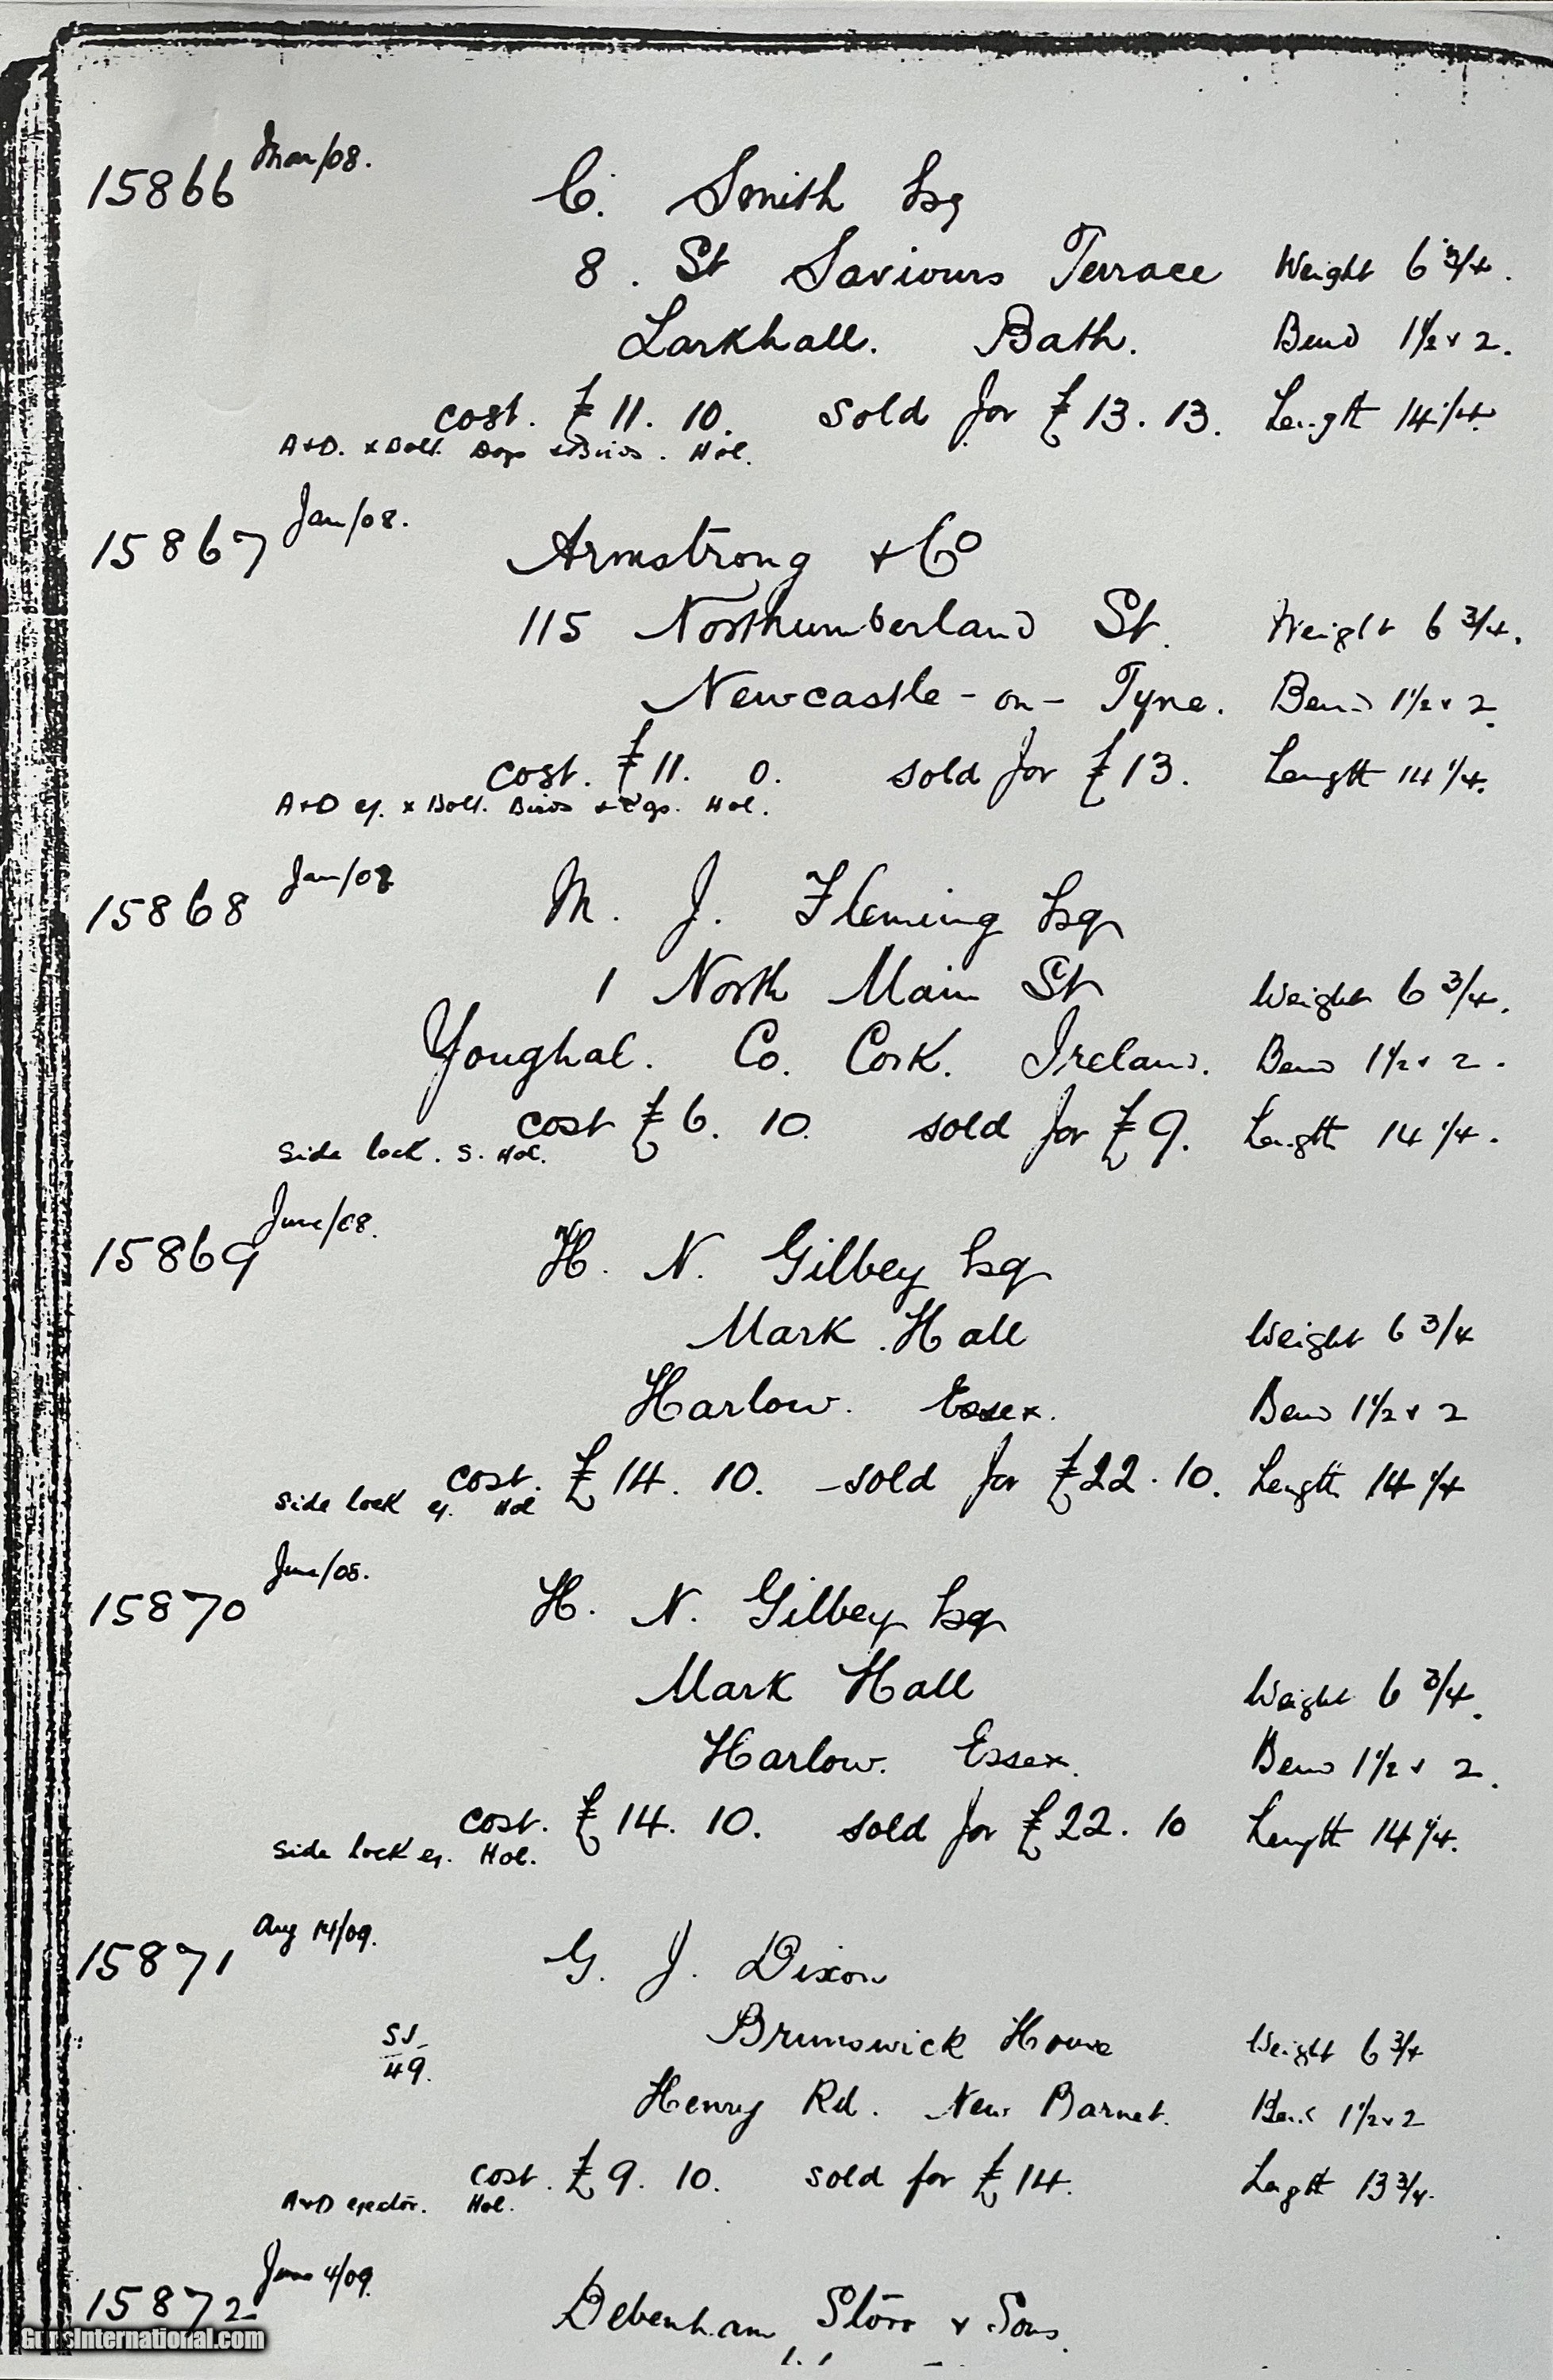 15866 Mar/08. C. Smith Esq
8. St Saviours Terrace Weight 6 3/4.
Larkhall. Bath. Bend 1 1/2 x 2.
cost. £11. 10. sold for £13. 13. Length 14 1/4.
A+D. x Bolt. Dogs + Birds. Hol.
15867 Jan/08. Armstrong + Co
115 Northumberland St. Weight 6 3/4.
Newcastle-on-Tyne. Bend 1 1/2 x 2.
cost. £11. 0. sold for £13. Length 14 1/4.
A+D ej. x Bolt. Birds + Hol.
15868 Jan/08 M. J. Fleming Esq
1 North Main St Weight 6 3/4.
Youghal. Co. Cork. Ireland. Bend 1 1/2 x 2.
cost £6. 10. sold for £9. Length 14 1/4.
Side lock. S. Hol.
15869 June/08. H. N. Gilbey Esq
Mark Hall Weight 6 3/4
Harlow. Essex. Bend 1 1/2 x 2
cost. £14. 10. sold for £22. 10. Length 14 1/4
Side lock ej. Hol
15870 June/08. H. N. Gilbey Esq
Mark Hall Weight 6 3/4.
Harlow. Essex. Bend 1 1/2 x 2.
cost. £14. 10. sold for £22. 10 Length 14 1/4.
Side lock ej. Hol.
15871 Aug 14/09. G. J. Dixon
SJ
49. Brunswick House Weight 6 3/4
Henry Rd. New Barnet. Bend 1 1/2 x 2
cost. £9. 10. sold for £14. Length 13 3/4.
A+D ejector. Hol.
15872 June 4/09. Debenham Storr + Sons.
GunsInternational.com